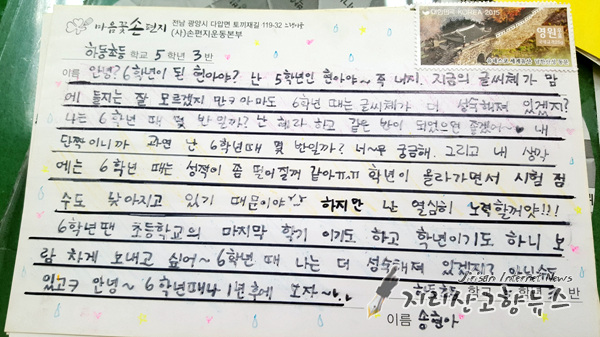 마음꽃 손편지
전남 광양시 다압면 토끼재길 119-32
(사)손편지운동본부
대한민국 KOREA 2015
영원
하동초등 학교 5학년 3반
이름 안녕? 6학년이 된 현아야? 난 5학년인 현아야~ 즉 너지. 지금의 글씨체가 맘
에 들지는 잘 모르겠지만ㅋ 아마도 6학년 때는 글씨체가 더 성숙해져 있겠지?
나는 6학년 때 몇 반일까? 난 혜라 하고 같은 반이 되었으면 좋겠어~♥ 내
단짝이니까 과연 난 6학년때 몇 반일까? 너~무 궁금해. 그리고 내 생각
에는 6학년 때는 성적이 좀 떨어질꺼 같아ㅠㅠ 학년이 올라가면서 시험 점
수도 낮아지고 있기 때문이야 하지만 난 열심히 노력할꺼얏!!!
6학년땐 초등학교의 마지막 학기 이기도 하고 학년이기도 하니 보
람 차게 보내고 싶어~ 6학년 때 나는 더 성숙해져 있겠지? 아닐수도
있고ㅋ 안녕~ 6학년때나 1년후에 보자~
Jirisan Internet News
지리산고향뉴스
학교 학년 반
이름 송현아